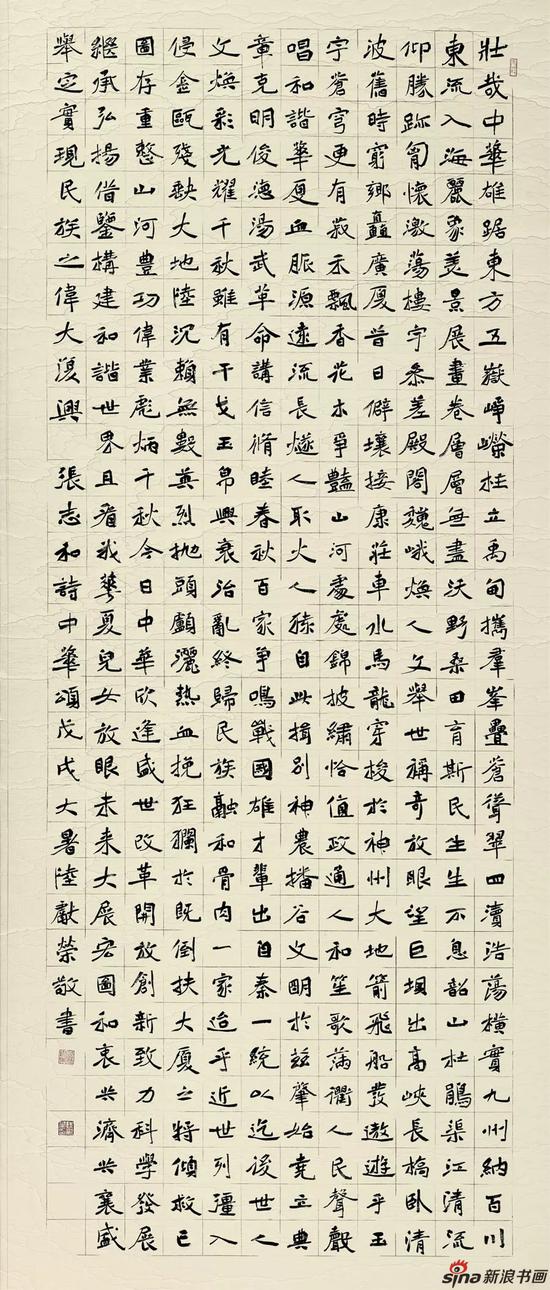 壯哉中華雄踞東方五嶽崢嶸柱立禹甸攜羣峯疊蒼聳翠四瀆浩蕩橫實九州納百川
東流入海麗象美景展畫卷層層無盡沃野桑田育斯民生生不息韶山杜鵑渠江清流
仰勝跡匍懷激蕩樓宇叅差殿閣巍峨煥人文舉世稱奇放眼望巨坝出高峽長橋臥清
波舊時窮鄉矗廣厦昔日僻壤接康莊車水馬龍穿梭於神州大地箭飛船發遨遊乎玉
宇蒼穹更有菽禾飄香花木爭豔山河處處錦披繡恰值政通人和笙歌滿衢人民聲毅
唱和諧華夏血脈源遠流長燧人取火人猿自此揖別神農播谷文明於兹肇始堯立典
章克明俊德湯武革命講信脩睦春秋百家爭鳴戰國雄才輩出自秦一統以迄後世人
文煥彩光耀千秋雖有干戈玉帛興衰治亂終歸民族融和骨肉一家迨乎近世列彊入
侵金甌殘缺大地陸沉賴無數英烈抛頭顱灑熱血挽狂瀾於既倒扶大厦之將傾救亡
圖存重整山河豊功偉業彪炳千秋今日中華欣逢盛世改革開放創新致力科學發展
繼承弘揚借鑒構建和諧世界且看我華夏兒女放眼未来大展宏圖和衷共濟共襄盛
舉定實現民族之偉大復興 張志和詩中華頌戊戌大暑陸獻榮敬書
sina新浪书画